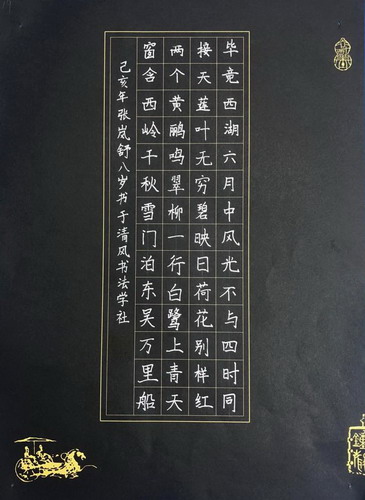 毕竟西湖六月中风光不与四时同
接天莲叶无穷碧映日荷花别样红
两个黄鹂鸣翠柳一行白鹭上青天
窗含西岭千秋雪门泊东吴万里船
己亥年张岚舒八岁书于清风书法学社